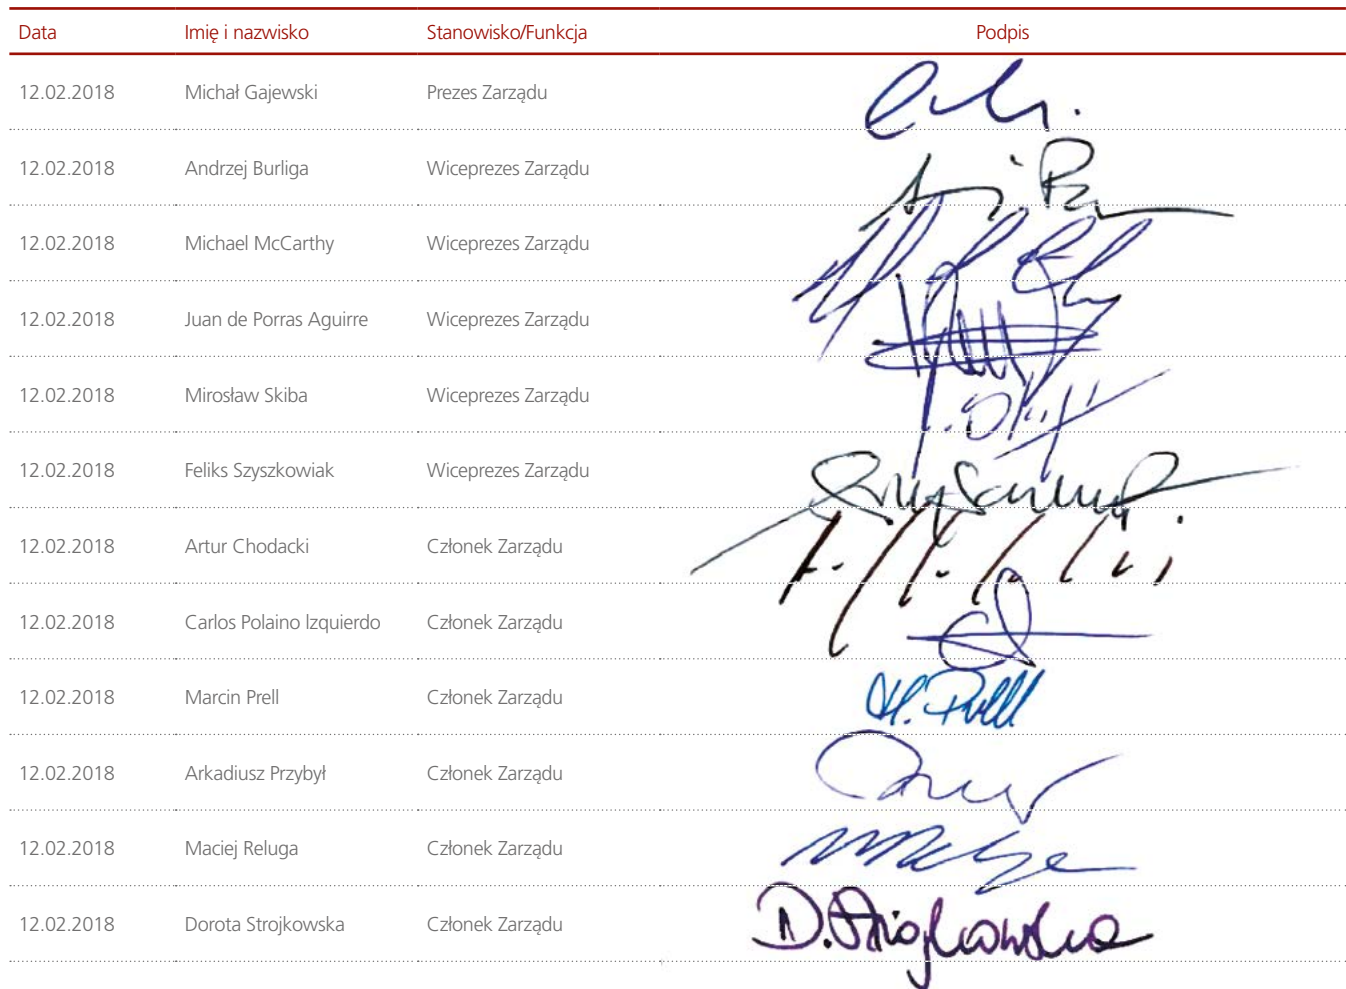 Data Imię i nazwisko Stanowisko/Funkcja Podpis
12.02.2018 Michał Gajewski Prezes Zarządu
12.02.2018 Andrzej Burliga Wiceprezes Zarządu
12.02.2018 Michael McCarthy Wiceprezes Zarządu
12.02.2018 Juan de Porras Aguirre Wiceprezes Zarządu
12.02.2018 Mirosław Skiba Wiceprezes Zarządu
12.02.2018 Feliks Szyszkowiak Wiceprezes Zarządu
12.02.2018 Artur Chodacki Członek Zarządu
12.02.2018 Carlos Polaino Izquierdo Członek Zarządu
12.02.2018 Marcin Prell Członek Zarządu M. Prell
12.02.2018 Arkadiusz Przybył Członek Zarządu
12.02.2018 Maciej Reluga Członek Zarządu
12.02.2018 Dorota Strojkowska Członek Zarządu D. Strojkowska